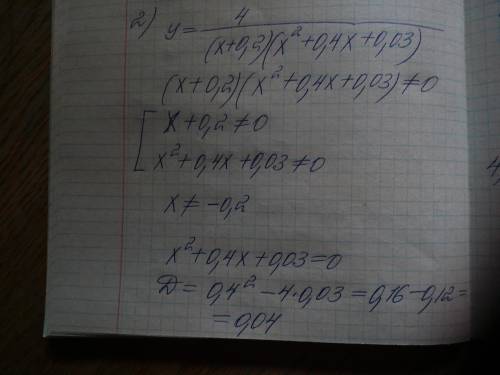 2) y = 4 / (x+0,2)(x²+0,4x+0,03)
(x+0,2)(x²+0,4x+0,03) ≠ 0
[ x+0,2 ≠ 0
x²+0,4x+0,03 ≠ 0
x ≠ -0,2
x²+0,4x+0,03 = 0
D = 0,4² - 4·0,03 = 0,16 - 0,12 =
= 0,04